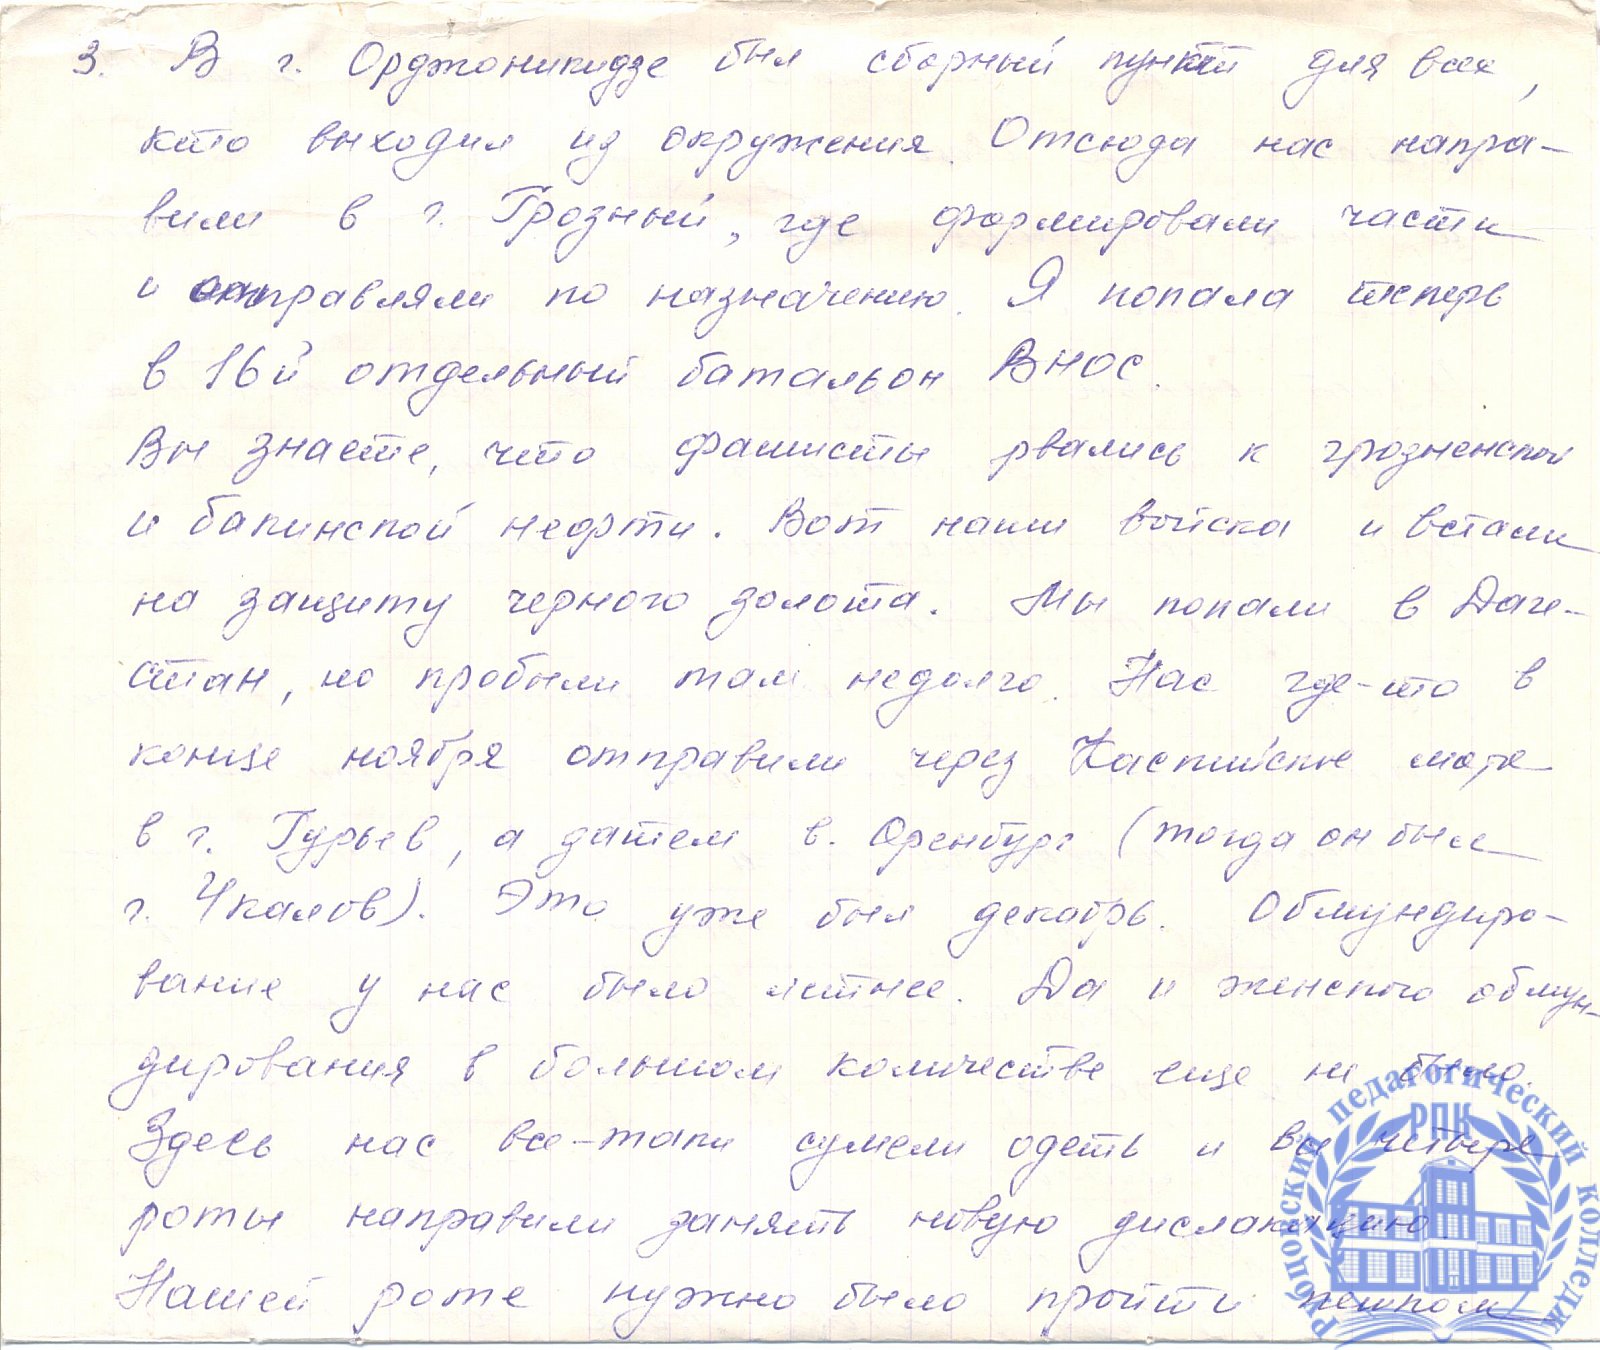 3. В г. Орджоникидзе был сборный пункт для всех,
кто выходил из окружения. Отсюда нас напра-
вили в г. Грозный, где формировали части
и направляли по назначению. Я попала теперь
в 16й отдельный батальон ВНОС.
Вы знаете, что фашисты рвались к грозненской
и бакинской нефти. Вот наши войска и встали
на защиту черного золота. Мы попали в Даге-
стан, но пробыли там недолго. Нас где-то в
конце ноября отправили через Каспийское море
в г. Гурьев, а затем в. Оренбург (тогда он был
г. Чкалов). Это уже был декабрь. Обмундиро-
вание у нас было летнее. Да и женского обмун-
дирования в большом количестве еще не было.
Здесь нас все-таки сумели одеть и все четыре
роты направили занять новую дислокацию.
Нашей роте нужно было пройти пешком
Рубцовский педагогический колледж
РПК